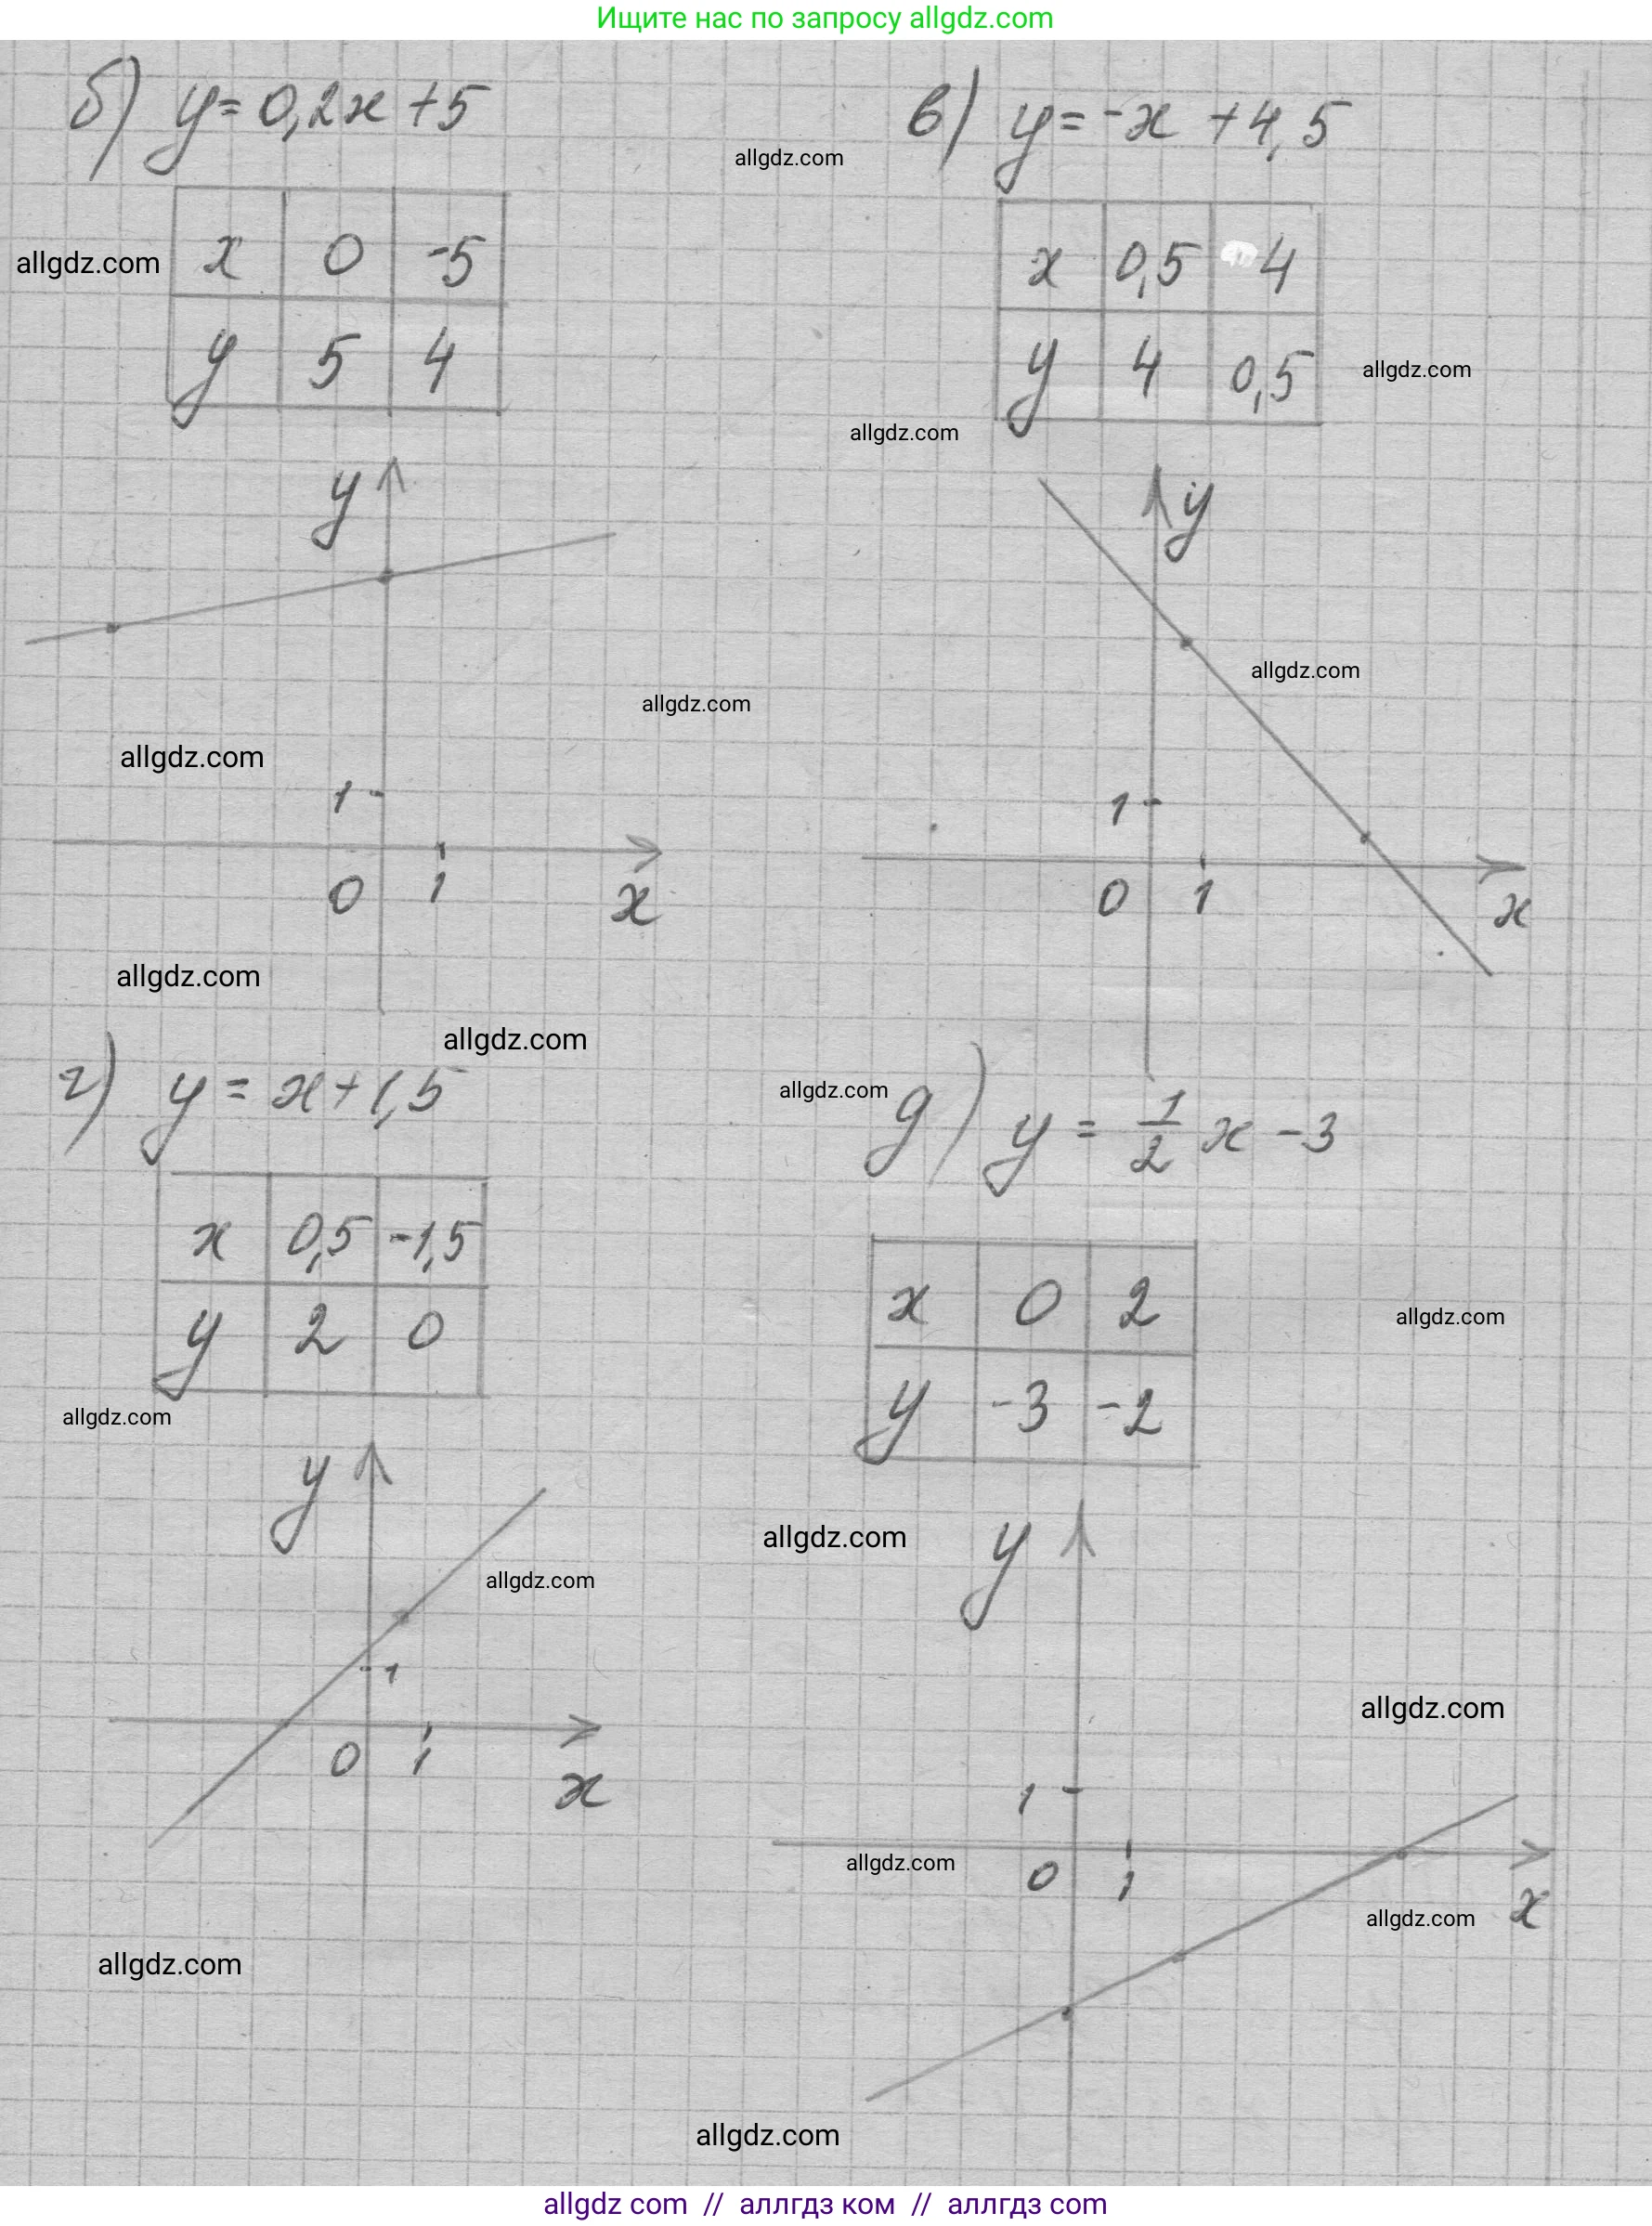 Ищите нас по запросу allgdz.com
б) y = 0,2x + 5
allgdz.com
x 0 -5
y 5 4
allgdz.com
в) y = -x + 4,5
x 0,5 4
y 4 0,5
allgdz.com
allgdz.com
y
1
0 1 x
allgdz.com
allgdz.com
allgdz.com
y
allgdz.com
1
0 1 x
allgdz.com
г) y = x + 1,5
x 0,5 -1,5
y 2 0
allgdz.com
allgdz.com
д) y = 1/2 x - 3
x 0 2
y -3 -2
allgdz.com
y
allgdz.com
1
0 1 x
allgdz.com
allgdz.com
y
allgdz.com
1
allgdz.com
0 1 x
allgdz.com
allgdz.com
allgdz com // аллгдз ком // аллгдз com